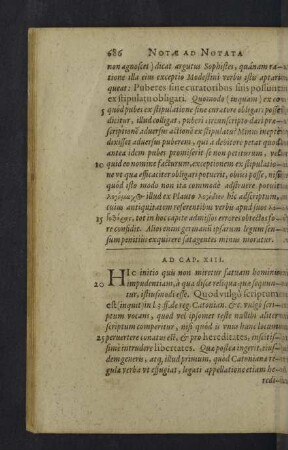 686 NOTÆ AD NOTATA
non agnoscet) dicat argutus Sophistes, quânam ra-
tione illa eius exceptio Modestini verbis istis aptari
queat: Puberes sine curatoribus suis possunt
ex stipulatu obligari. Quomodo (inquam) ex eo
quid pubes ex stipulatione sine curatore obligari posse
dicitur, illud colligat, puberi circumscripto dari præ-
scriptionē aduersus actionē ex stipulatu? Minus inepte
dixisset aduersus puberem, qui à debitore petat quod
antea idem pubes promiserit se non petiturum, vel
10 quid eo nomine facturum, exceptionem ex stipulatio-
ne vt qua efficaciter obligari potuerit, obiici posse,
quod isto modo non ita commodè adseruere potuit
& illud ex Plauto his adscriptum,
cuius antiquitatem referentibus verbo apud
15 tot in hoc capite admissos errores obtectos fo-
re confidit. Aliter enim germanū ipsarum legum sen-
sum penitius exquirere satagentes minus moratur.
AD CAP. XIII.
HIc initio quis non miretur fatuam hominis
20 impudentiam, à qua disce reliqua quæ sequun-
tur, istiusmodi esse. Quod vulgò scriptum
est (inquit) in l. 3. ff. de reg. Catonian. &c. vulgò scri-
ptum vocans, quod vel ipsomet teste nullibi aliter
scriptum comperitur, nisi quòd is vnus hunc locum
25 peruertere conatus est, & pro hereditates, inscitis-
simè intrudere libertates. Quæ postea ingerit, eius-
dem generis, atq, illud primum, quod Catoniana re-
gula verba vt effugiat, legati appellatione etiam he-
redi-